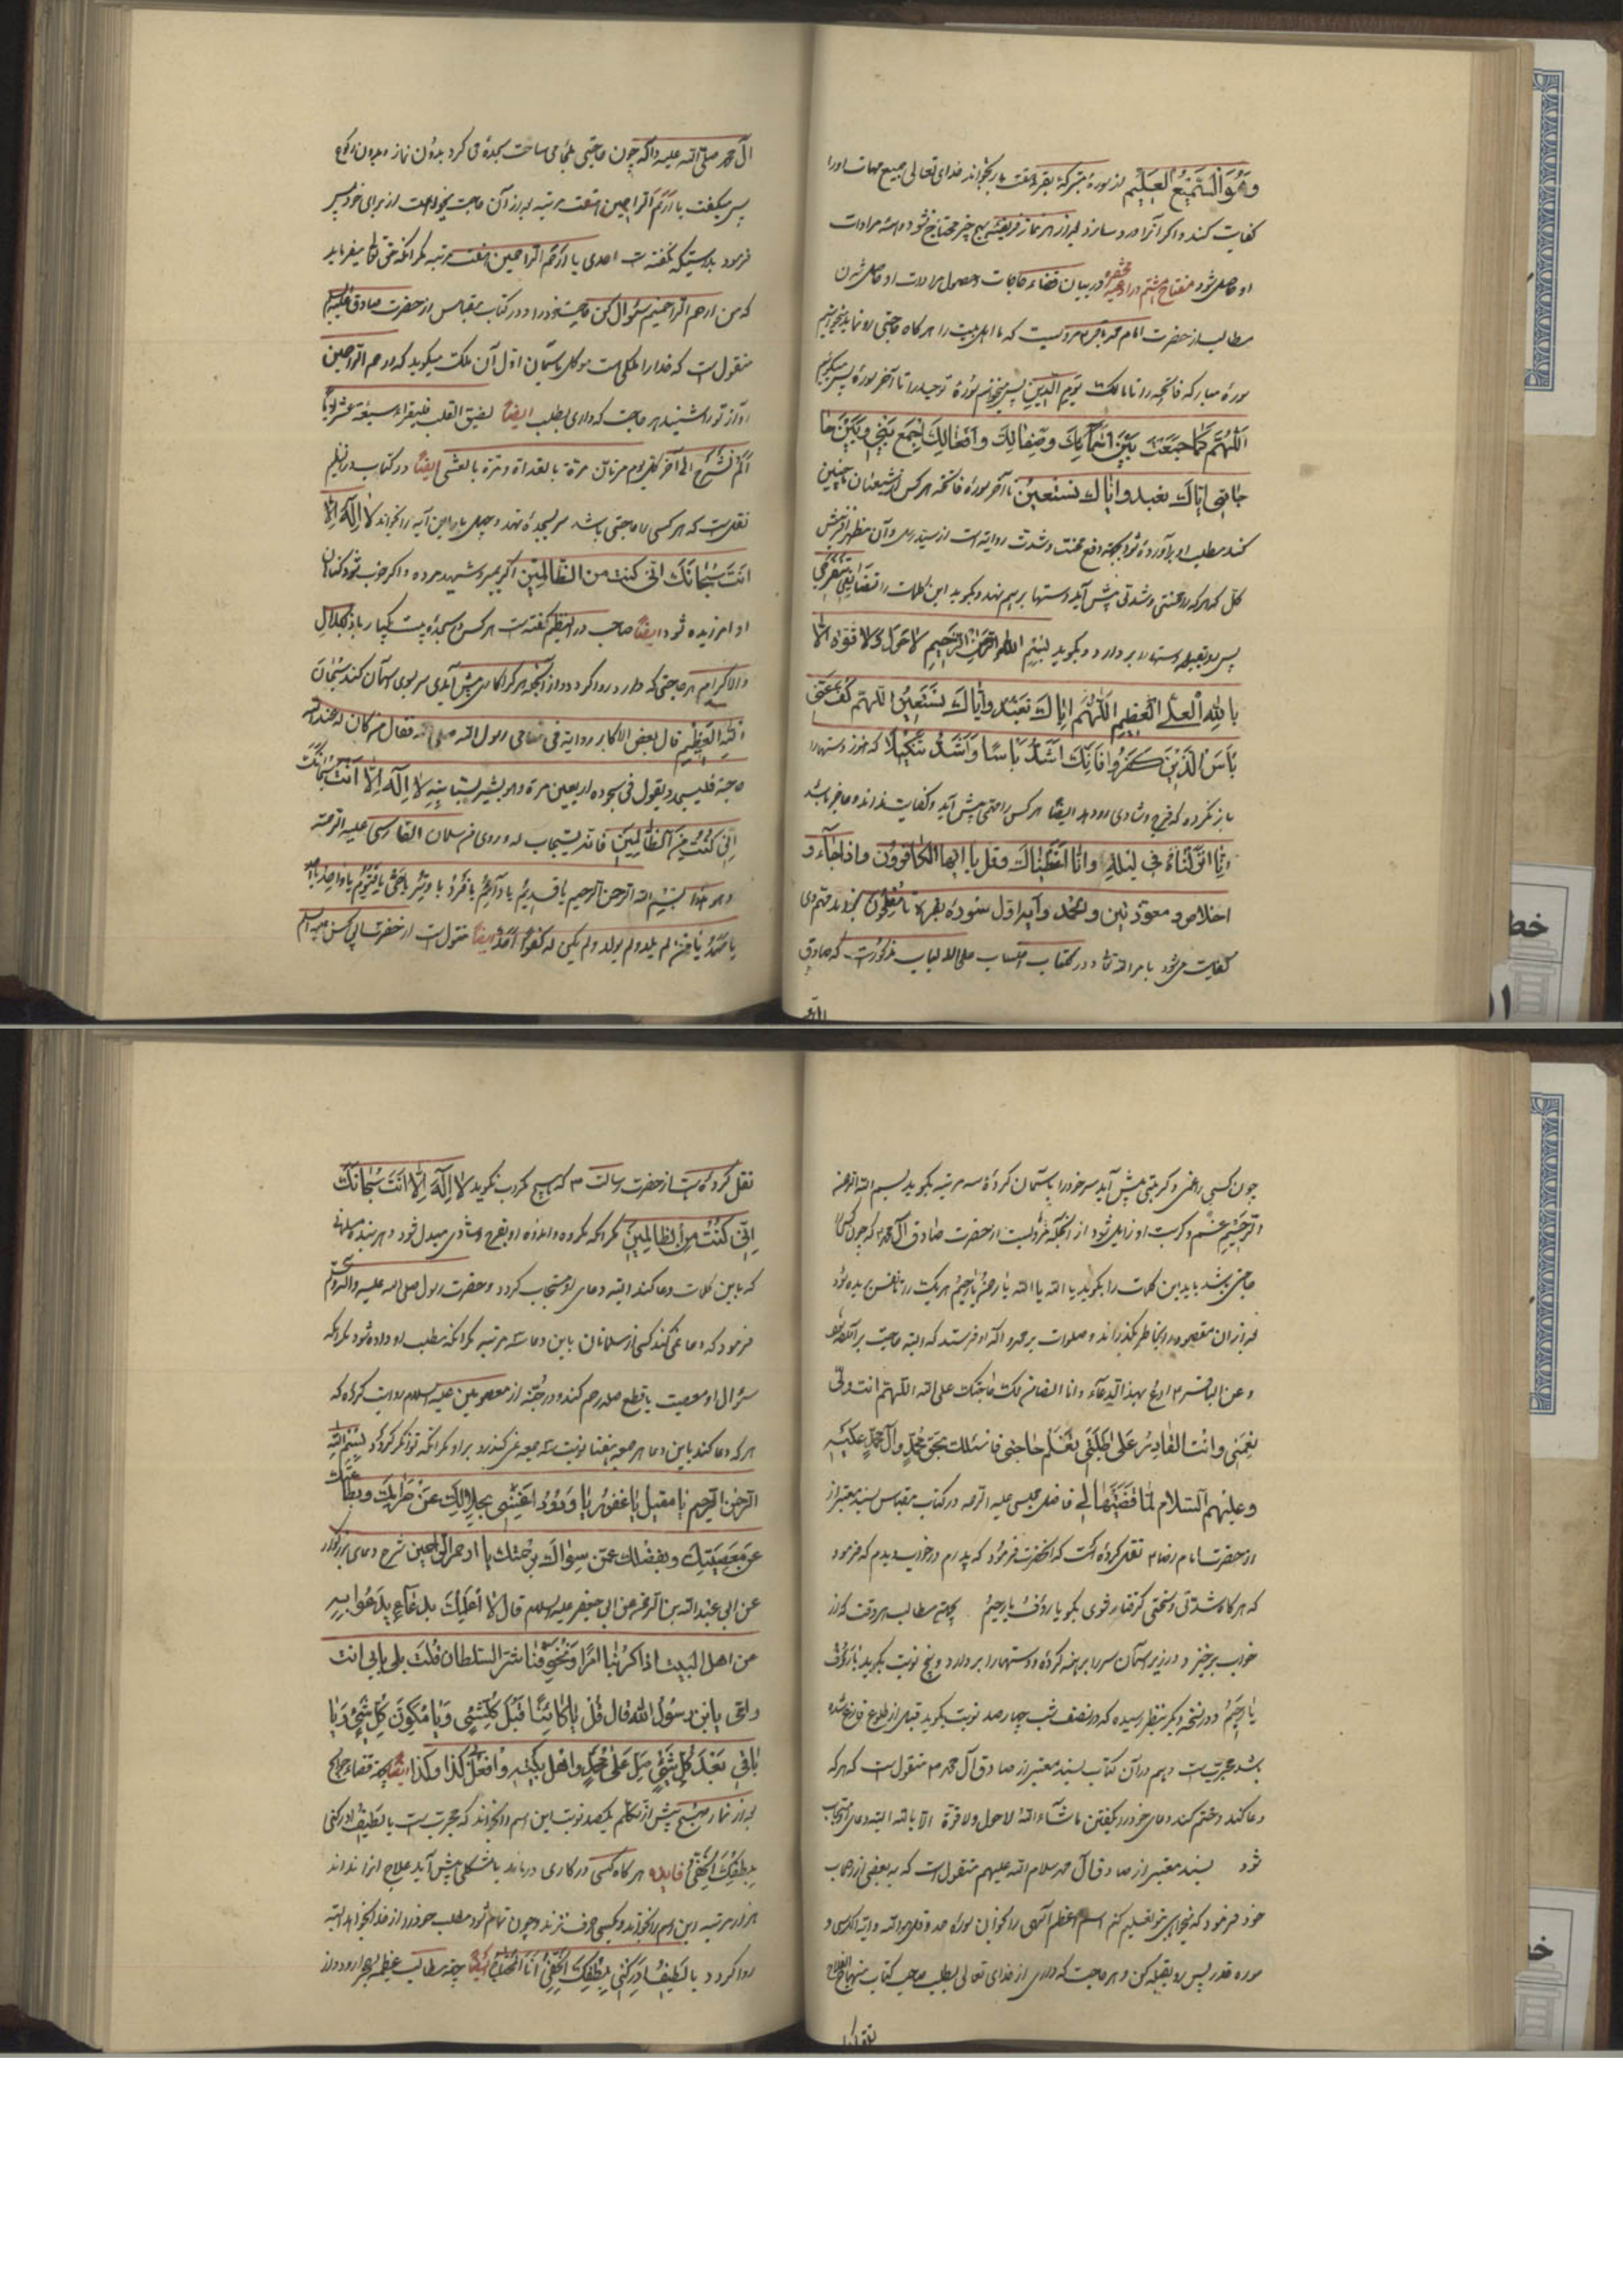 وَهُوَ السَّمِيعُ الْعَلِيمُ از سورهٔ متبرکهٔ بقره هفت بار بخواند خدای تعالی جمیع مهمات او را
کفایت کند و اکر آنرا ورد سازد بعد از هر نماز فریضه بهیچ چیز محتاج نشود و همه مرادات
او حاصل شود مفتاح هشتم در ادعیه در بیان قضاء حاجات و حصول مرادات و حاصل شدن
مطالب از حضرت امام محمد باقر ع مرویست که ما اهل بیت را هر کاه حاجتی رو نماید میخوانیم
سورهٔ مبارکه فاتحه را تا مالک یوم الدین پس میخوانم سورهٔ توحید را تا آخر سوره پس میکویم
اَللّهُمَّ كَمَا جَمَعْتَ بَيْنَ اَسْمَآئِكَ وَصِفَاتِكَ وَاَفْعَالِكَ اِجْمَعْ بَيْنِي وَبَيْنَ حا
جاتی اِيَّاكَ نعبد وايّاك نستعين تا آخر سوره فاتحه هر کس از شیعیان ما چنین
کند مطلب او برآورده شود بجهة دفع محنت و شدت روایتست از سید رسل و آن مظهر آفرینش
کل که هر که را محنتی و شدتی پیش آید دستها بر هم نهد و بکوید این کلمات را
پس رو بقبله دستها را بر دارد و بکوید بِسْمِ اللهِ الرَّحْمنِ الرَّحِيمِ لا حَوْلَ وَلا قُوَّةَ اِلّا
بِاللهِ الْعَلِيِّ الْعَظِيمِ اَللّهُمَّ اِيّاكَ نَعْبُدُ وَاِيّاكَ نَسْتَعِينُ اَللّهُمَّ كُفَّ عَنّي
بَأْسَ الَّذِينَ كَفَرُوا فَاِنَّكَ اَشَدُّ بَاْسًا وَاَشَدُّ تَنْكِيلًا که هنوز دستها را
باز نکرده که فرج و شادی او دهد ایضًا هر کس را مهمی پیش آید و کفایت نداند و عاجز باشد
اِنّا اَنْزَلْناهُ فِي لَيْلَةِ وَاِنّا اَعْطَيْناكَ وقل يا ايها الكافرون واذا جآء و
اخلاص و معوّذتین و الحمد و آیه اوّل سوره بقره تا مُفْلِحُونَ بخواند مهم وی
کفایت میشود بامر الله تعا و در کتاب مذکورست که صادق
ال محمد صلی الله علیه و آله چون حاجتی ساخت سجده می کرد بدون نماز و بدون رکوع
پس میکفت یا ارحم الراحمین هفت مرتبه بعد از آن حاجت میخواست از برای خود پس
فرمود بدرستیکه نکفته است احدی یا ارحم الراحمین هفت مرتبه مکر انکه حق تعا میفرماید
که من ارحم الراحمینم سؤال کن حاجت خود را و در کتاب مقباس از حضرت صادق علیه السلم
منقول است که خدا را ملکی است موکل باسمان اوّل آن ملک میکوید که ارحم الراحمین
آواز تو را شنید هر حاجت که داری بطلب ایضًا لضیق القلب فلیقراء سبعة عشر
اَلَمْ نَشْرَحْ الی آخر کل یوم مرتان مرّة بالغداة و مرّة بالعشی ایضًا در کتاب
نقلست که هر کسی را حاجتی باشد سر بسجده نهد و چهل بار این آیه را بخواند لا اِلهَ اِلّا
اَنْتَ سُبْحانَكَ اِنّي كُنْتُ مِنَ الظّالِمِينَ اکر بمیرد شهید مرده و اکر خوب شود کناهان
او امرزیده شود ایضًا صاحب در النظیم کفته است هر کس در سجده بیست یکبار یا ذا الجلال
والاکرام هر حاجتی که دارد روا کردد و از آنجمله هر کرا کاری پیش آید سر بسوی اسمان کند سُبْحانَ
اللّهِ الْعَظِيمِ قال بعض الاکابر روایة فی منامی رسول الله صلی الله فقال من کان له عند الله
حاجة فلیسجد و یقول فی سجوده اربعین مرة و هو یشیر بسبّابته لا اِلهَ اِلّا اَنْتَ سُبْحانَكَ
اِنّي كُنْتُ مِنَ الظّالِمِينَ فانه یستجاب له و روی من سلمان الفارسی علیه الرحمه
و هو هذا بسم الله الرحمن الرحیم یا قدیم یا دائم یا فرد یا وتر یا حیّ یا قیّوم یا واحد یا احد
یا صمد یا من لم یلد و لم یولد و لم یکن له کفوًا احد ایضًا منقول است از حضرت ابی الحسن علیه السلم
چون کسی را غمی و کربتی پیش آید سر خود را باسمان کرده سه مرتبه بکوید بسم الله الرحمن
الرحیم غم و کربت او زایل شود از آنجمله مرویست از حضرت صادق آل محمد که چون کسی را
حاجتی باشد باید این کلمات را بکوید یا الله یا الله یا رحمن یا رحیم هر یک را تا نفس بریده شود
بعد از آن مقصود را بخاطر بکذراند و صلوات بر محمد و آله او فرستد که البته حاجت بر آمده شود
و عن الباقر ع ادع بهذا الدعآء و انا الضامن لک حاجتک علی الله اللهم انت ولیّ
نِعْمَتي وَاَنْتَ القادِرُ عَلى طَلِبَتي تَعْلَمُ حاجَتي فَاَسْئَلُكَ بِحَقِّ مُحَمَّدٍ وَآلِ مُحَمَّدٍ عَلَيْهِ
وَعَلَيْهِمُ السَّلام لَمّا قَضَيْتَها لي فاضل مجلسی علیه الرحمه در کتاب مقباس بسند معتبر از
از حضرت امام رضا ع نقل کرده است که آنحضرت فرمود که پدرم در خواب دیدم که فرمود
که هر کاه شدتی و سختی کرفتار شوی بکو یا رؤف یا رحیم بجهة مطالب هر وقت که از
خواب برخیزد در زیر اسمان سر را برهنه کرده و دستها را بردارد و پنج نوبت بکوید یا رؤف
یا رحیم و در نسخه دیکر بنظر رسیده که در نصف شب چهار صد نوبت بکوید قبل از طلوع فارغ شده
باشد مجربست و هم در آن کتاب بسند معتبر از صادق آل محمد ع منقول است که هر که
دعا کند و ختم کند دعای خود را بکفتن ما شآء الله لا حول ولا قوة الا بالله البته دعای مستجاب
شود بسند معتبر از صادق آل محمد سلام الله علیهم منقول است که به بعضی از اصحاب
خود فرمود که میخواهی بتو تعلیم کنم اسم اعظم الهی را بخوان سوره حمد و قل هو الله و آیة الکرسی و
سوره قدر پس رو بقبله کن و هر حاجت که داری از خدای تعالی بطلب صاحب کتاب منهاج الفلاح
نقل کرده است از حضرت رسالت ع که هیچ مکروب نکوید لا اِلهَ اِلّا اَنْتَ سُبْحانَكَ
اِنّي كُنْتُ مِنَ الظّالِمِينَ مکر آنکه مکروه و اندوه او بفرح و شادی مبدل شود و هر بنده مسلمانی
که باین کلمات دعا کند البته دعای او مستجاب کردد و حضرت رسول صلی الله علیه و اله و سلم
فرمود که دعا نمی کند کسی از مسلمانان باین دعا سه مرتبه مکر آنکه مطلب او داده شود مکر آنکه
سؤال او معصیت یا قطع صله رحم کند و در جُنّه از معصومین علیهم السلام روایت کرده که
هر که دعا کند باین دعا هر جمعه نوبت سه جمعه نمی کذرد بر او مکر آنکه توانکر کردد بِسْمِ اللهِ
الرَّحْمنِ الرَّحِيمِ يا مُقِيلُ يا غَفُورُ يا وَدُودُ اَغْنِني بِحَلالِكَ عَنْ حَرامِكَ وَبِطاعَتِكَ
عَنْ مَعْصِيَتِكَ وَبِفَضْلِكَ عَمَّنْ سِواكَ بِرَحْمَتِكَ يا اَرْحَمَ الرّاحِمِينَ شرح دعای بزرکوار
عن ابی عبد الله عن ابی جعفر علیه السلم قال الا اُعَلِّمُكَ بدُعآءٍ يَدْعُوا بِهِ
مِن اهل البيت اذا كَرُبَنا اَمْرٌ وَتَخَوَّفْنا شر السلطان قُلْتَ بلى بابی انت
وامّی یابن رسول الله قال قُلْ يا كائِنًا قَبْلَ كُلِّ شَيْءٍ وَيا مُكَوِّنَ كُلِّ شَيْءٍ وَيا
باقي بَعْدَ كُلِّ شَيْءٍ صَلِّ عَلى مُحَمَّدٍ واهل بَيْتِهِ وافْعَلْ كَذا وَكَذا ایضًا بجهة قضاء حوایج
بعد از نماز صبح پیش از تکلم یکصد نوبت این اسم را بخواند که مجربست یا لطیف ادرکنی
بِلُطْفِكَ الْخَفِيِّ فایده هر کاه کسی در کاری درماند یا مشکلی پیش آید علاج انرا نداند
هزار مرتبه این اسم را بخواند و بکسی حرف نزند و چون تمام شود مطلب خود را از خدا بخواهد البته
روا کردد یا لَطِيفُ اَدْرِكْني بِلُطْفِكَ الْخَفِيِّ ایضًا بجهة مطالب عظیمه